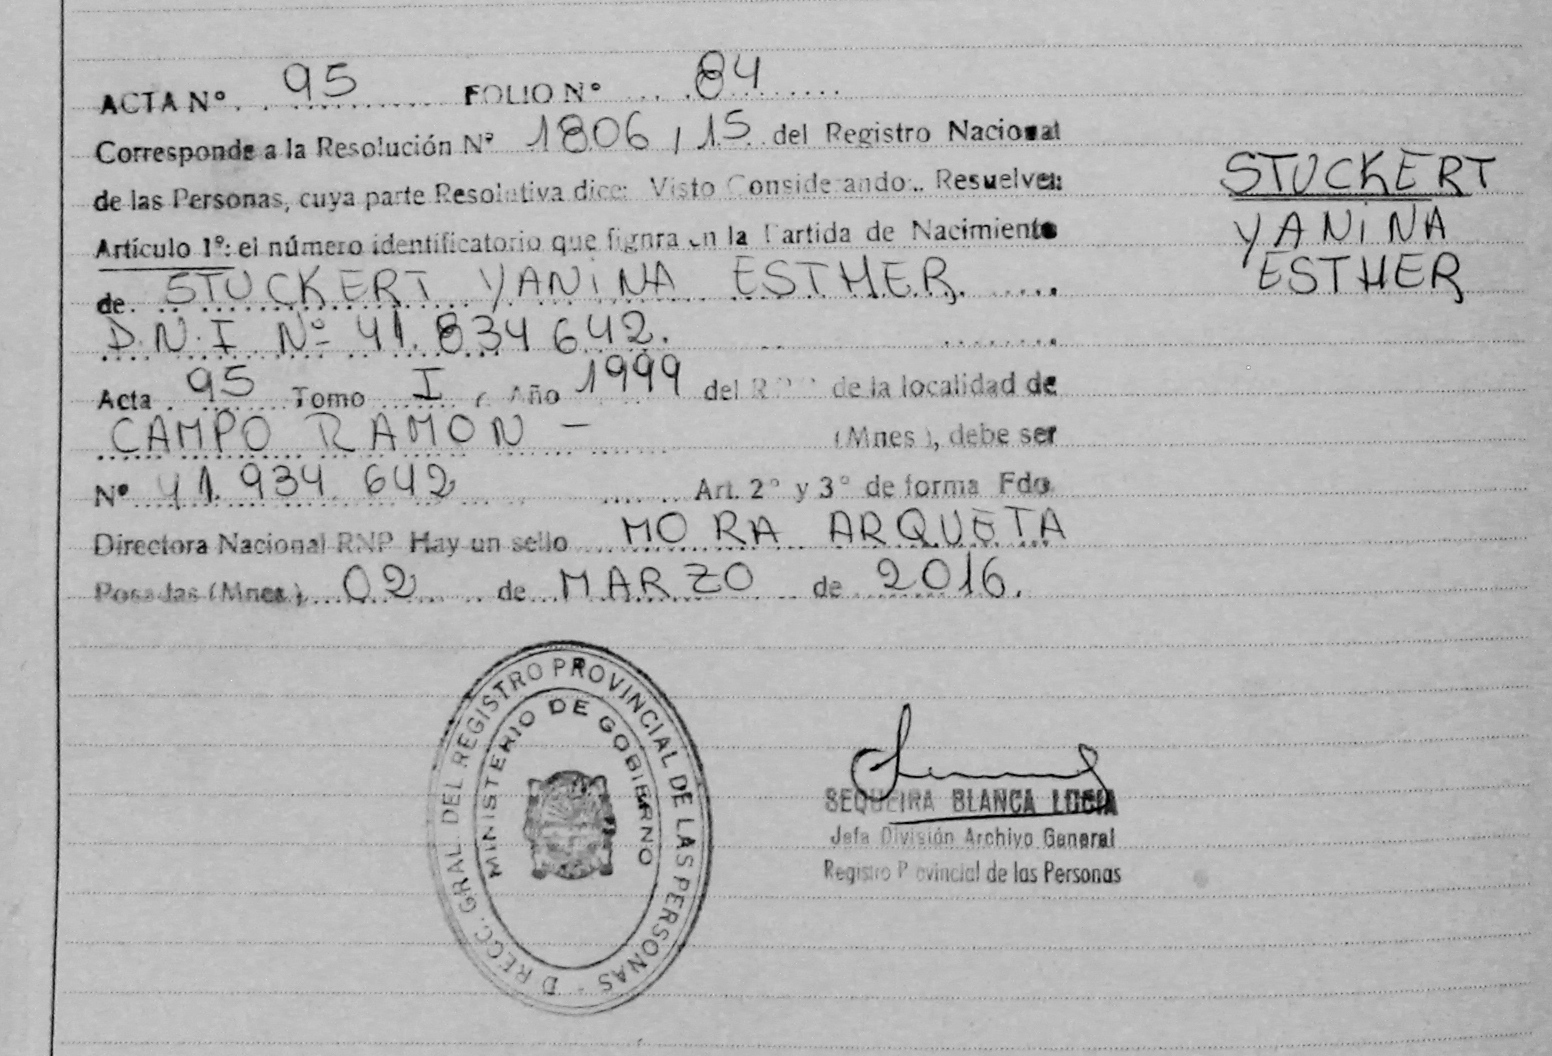 ACTA Nº 95 FOLIO Nº 84
Corresponde a la Resolución Nº 1806 / 15 del Registro Nacional
de las Personas, cuya parte Resolutiva dice: Visto Considerando: Resuelven:
Artículo 1º: el número identificatorio que fignra en la Partida de Nacimiento
de STUCKERT YANINA ESTHER.
D.N.I Nº 41.834642.
Acta 95 Tomo I Año 1999 del de la localidad de
CAMPO RAMON –
(Mnes), debe ser
Nº 41.934.642 Art. 2º y 3º de forma Fdo.
Directora Nacional RNP Hay un sello MORA ARQUETA
Posadas (Mnes.) 02 de MARZO de 2016.
STUCKERT
YANINA
ESTHER
DRECC. GRAL. DEL REGISTRO PROVINCIAL DE LAS PERSONAS -
MINISTERIO DE GOBIERNO
SEQUEIRA BLANCA LUCIA
Jefa División Archivo General
Registro Provincial de las Personas